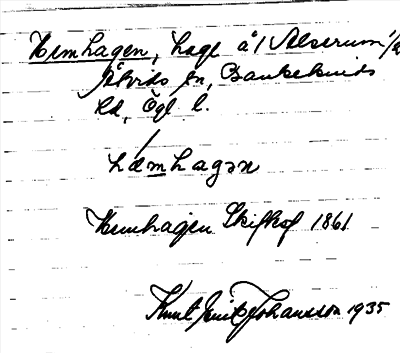 Hemhagen, hage å / Alserum /ä
Åtvids sn, Bankekinds
hd, Ögl l.
hæmhagən
Hemhagen Skifkof 1861
Knut Emil Johansson 1935